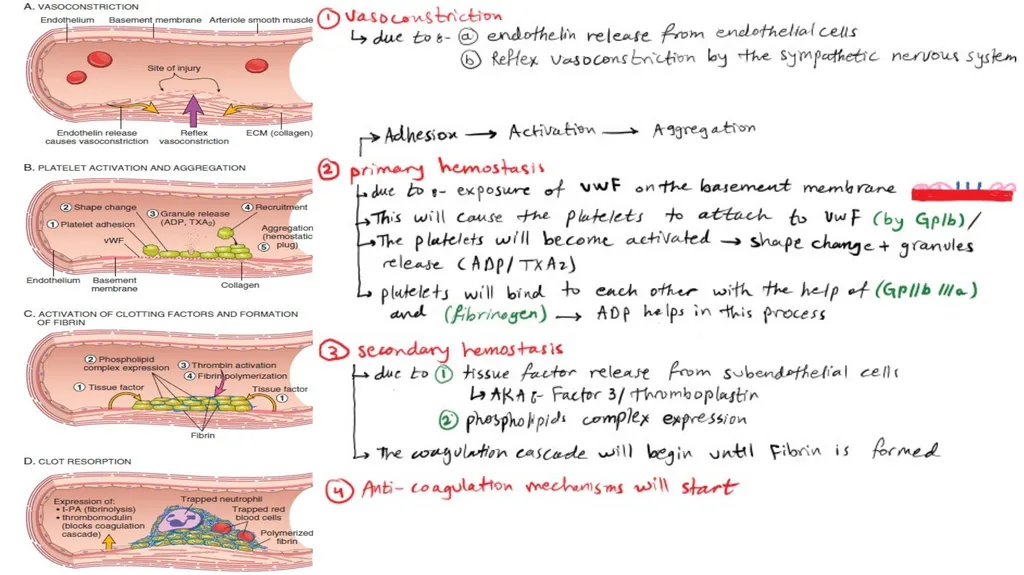 A. VASOCONSTRICTION
Endothelium Basement membrane Arteriole smooth muscle
Site of injury
Endothelin release
causes vasoconstriction
Reflex
vasoconstriction
ECM (collagen)
① Vasoconstriction
↳ due to :- ⓐ endothelin release from endothelial cells
ⓑ Reflex vasoconstriction by the sympathetic nervous system
Adhesion → Activation → Aggregation
B. PLATELET ACTIVATION AND AGGREGATION
② Shape change
③ Granule release
(ADP, TXA2)
④ Recruitment
① Platelet adhesion
Aggregation
(hemostatic
⑤ plug)
vWF
Endothelium
Basement
membrane
Collagen
② primary hemostasis
↳ due to :- exposure of vWF on the basement membrane
↳ This will cause the platelets to attach to vWF (by GpIb) /
↳ The platelets will become activated → shape change + granules
release (ADP/TXA2)
↳ platelets will bind to each other with the help of (GpIIb IIIa)
and (fibrinogen) → ADP helps in this process
C. ACTIVATION OF CLOTTING FACTORS AND FORMATION
OF FIBRIN
② Phospholipid
complex expression
③ Thrombin activation
④ Fibrin polymerization
① Tissue factor
Tissue factor
①
Fibrin
③ secondary hemostasis
↳ due to ① tissue factor release from subendothelial cells
↳ AKA :- Factor 3/ Thromboplastin
② phospholipids complex expression
↳ The coagulation cascade will begin until Fibrin is formed
D. CLOT RESORPTION
Expression of:
• t-PA (fibrinolysis)
• thrombomodulin
(blocks coagulation
cascade)
Trapped neutrophil
Trapped red
blood cells
Polymerized
fibrin
④ Anti-coagulation mechanisms will start